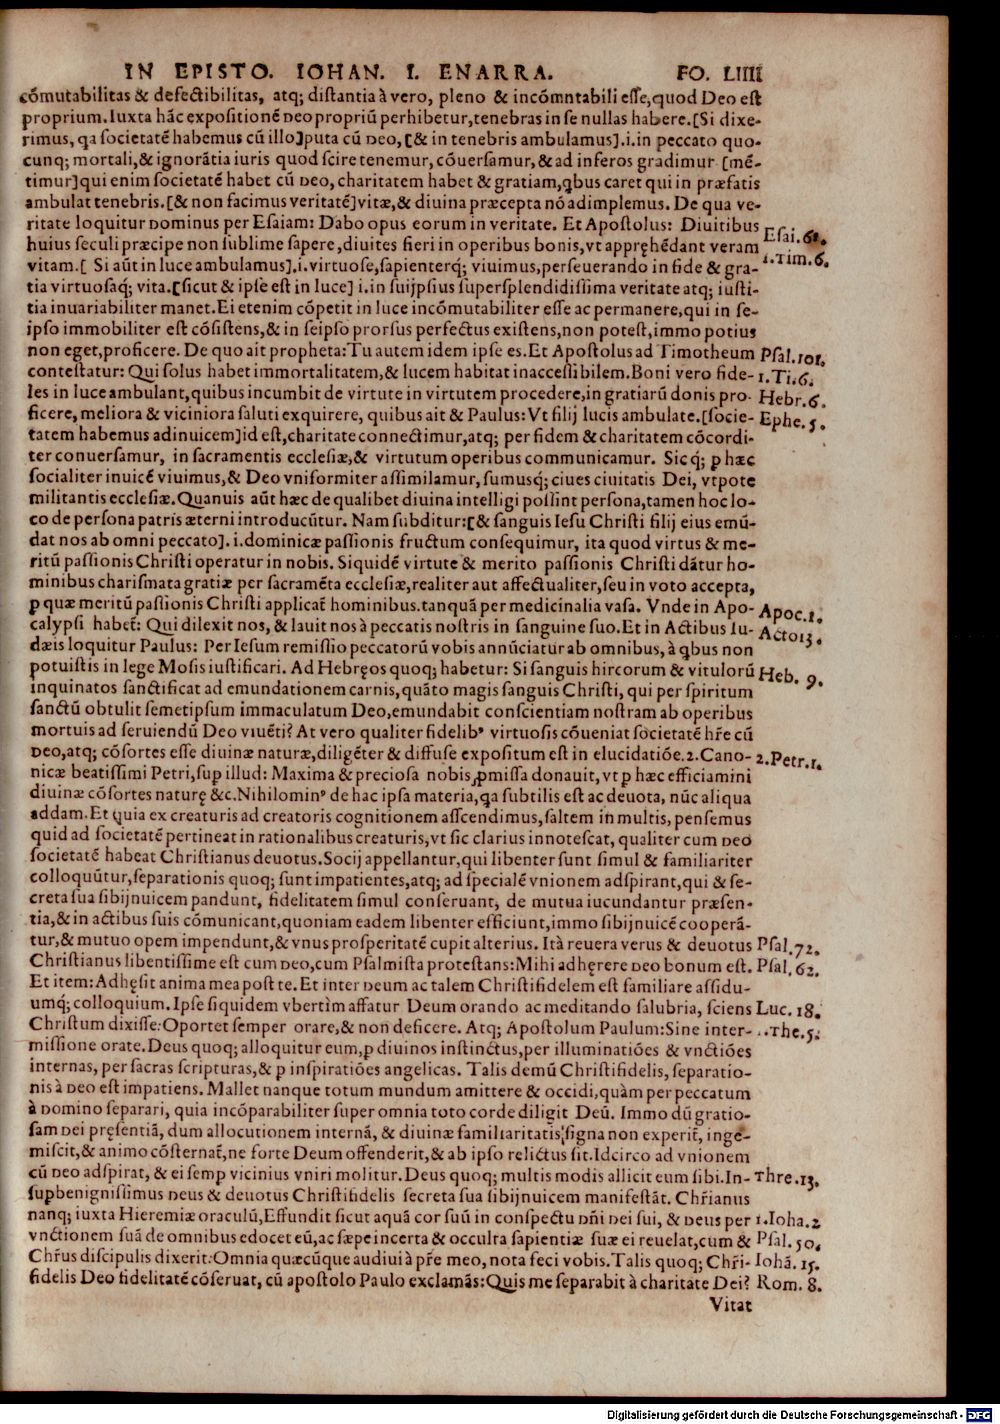 IN EPISTO. IOHAN. I. ENARRA. FO. LIIII
cōmutabilitas & defectibilitas, atq; distantia à vero, pleno & incōmntabili esse, quod Deo est
proprium. Iuxta hāc expositionē Deo propriū perhibetur, tenebras in se nullas habere. [Si dixe-
rimus, qa societatē habemus cū illo] puta cū Deo, [& in tenebris ambulamus] .i. in peccato quo-
cunq; mortali, & ignorātia iuris quod scire tenemur, cōuersamur, & ad inferos gradimur [mē-
timur] qui enim societatē habet cū Deo, charitatem habet & gratiam, qbus caret qui in præfatis
ambulat tenebris. [& non facimus veritatē] vitæ, & diuina præcepta nō adimplemus. De qua ve-
ritate loquitur Dominus per Esaiam: Dabo opus eorum in veritate. Et Apostolus: Diuitibus
Esai. 61.
huius seculi præcipe non sublime sapere, diuites fieri in operibus bonis, vt apprehēdant veram
1. Tim. 6.
vitam. [ Si aūt in luce ambulamus], .i. virtuose, sapienterq; viuimus, perseuerando in fide & gra-
tia virtuosaq; vita. [sicut & ipse est in luce] i. in suijpsius supersplendidissima veritate atq; iusti-
tia inuariabiliter manet. Ei etenim cōpetit in luce incōmutabiliter esse ac permanere, qui in se-
ipso immobiliter est cōsistens, & in seipso prorsus perfectus existens, non potest, immo potius
non eget, proficere. De quo ait propheta: Tu autem idem ipse es. Et Apostolus ad Timotheum Psal. 101.
contestatur: Qui solus habet immortalitatem, & lucem habitat inaccessibilem. Boni vero fide- 1. Ti. 6.
les in luce ambulant, quibus incumbit de virtute in virtutem procedere, in gratiarū donis pro- Hebr. 6.
ficere, meliora & viciniora saluti exquirere, quibus ait & Paulus: Vt filij lucis ambulate. [socie- Ephe. 5.
tatem habemus adinuicem] id est, charitate connectimur, atq; per fidem & charitatem cōcordi-
ter conuersamur, in sacramentis ecclesiæ, & virtutum operibus communicamur. Sicq; p hæc
socialiter inuicē viuimus, & Deo vniformiter assimilamur, sumusq; ciues ciuitatis Dei, vtpote
militantis ecclesiæ. Quanuis aūt hæc de qualibet diuina intelligi possint persona, tamen hoc lo-
co de persona patris æterni introducūtur. Nam subditur: [& sanguis Iesu Christi filij eius emū-
dat nos ab omni peccato]. i. dominicæ passionis fructum consequimur, ita quod virtus & me-
ritū passionis Christi operatur in nobis. Siquidē virtute & merito passionis Christi dātur ho-
minibus charismata gratiæ per sacramēta ecclesiæ, realiter aut affectualiter, seu in voto accepta,
p quæ meritū passionis Christi applicat̄ hominibus. tanquā per medicinalia vasa. Vnde in Apo- Apoc. 1.
calypsi habet̄: Qui dilexit nos, & lauit nos à peccatis nostris in sanguine suo. Et in Actibus Iu- Acto 13.
dæis loquitur Paulus: Per Iesum remissio peccatorū vobis annūciatur ab omnibus, à qbus non
potuistis in lege Mosis iustificari. Ad Hebręos quoq; habetur: Si sanguis hircorum & vitulorū Heb. 9.
inquinatos sanctificat ad emundationem carnis, quāto magis sanguis Christi, qui per spiritum
sanctū obtulit semetipsum immaculatum Deo, emundabit conscientiam nostram ab operibus
mortuis ad seruiendū Deo viuēti? At vero qualiter fidelibꝰ virtuosis cōueniat societatē hr̄e cū
Deo, atq; cōsortes esse diuinæ naturæ, diligēter & diffuse expositum est in elucidatiōe. 2. Cano- 2. Petr. 1.
nicæ beatissimi Petri, sup illud: Maxima & preciosa nobis ꝓmissa donauit, vt p hæc efficiamini
diuinæ cōsortes naturę &c. Nihilominꝰ de hac ipsa materia, qa subtilis est ac deuota, nūc aliqua
addam. Et quia ex creaturis ad creatoris cognitionem asscendimus, saltem in multis, pensemus
quid ad societatē pertineat in rationalibus creaturis, vt sic clarius innotescat, qualiter cum Deo
societatē habeat Christianus deuotus. Socij appellantur, qui libenter sunt simul & familiariter
colloquūtur, separationis quoq; sunt impatientes, atq; ad specialē vnionem adspirant, qui & se-
creta sua sibijnuicem pandunt, fidelitatem simul conseruant, de mutua iucundantur præsen-
tia, & in actibus suis cōmunicant, quoniam eadem libenter efficiunt, immo sibijnuicē cooperā-
tur, & mutuo opem impendunt, & vnus prosperitatē cupit alterius. Ità reuera verus & deuotus Psal. 72.
Christianus libentissime est cum Deo, cum Psalmista protestans: Mihi adhęrere Deo bonum est. Psal. 62.
Et item: Adhęsit anima mea post te. Et inter Deum ac talem Christifidelem est familiare assidu-
umq; colloquium. Ipse siquidem vbertìm affatur Deum orando ac meditando salubria, sciens Luc. 18.
Christum dixisse: Oportet semper orare, & non deficere. Atq; Apostolum Paulum: Sine inter- 1. The. 5.
missione orate. Deus quoq; alloquitur eum, p diuinos instinctus, per illuminatiōes & vnctiōes
internas, per sacras scripturas, & p inspiratiōes angelicas. Talis demū Christifidelis, separatio-
nis à Deo est impatiens. Mallet nanque totum mundum amittere & occidi, quàm per peccatum
à Domino separari, quia incōparabiliter super omnia toto corde diligit Deū. Immo dū gratio-
sam Dei pręsentiā, dum allocutionem internā, & diuinæ familiaritatis signa non experit̄, inge-
miscit, & animo cōsternat̄, ne forte Deum offenderit, & ab ipso relictus sit. Idcirco ad vnionem
cū Deo adspirat, & ei semp vicinius vniri molitur. Deus quoq; multis modis allicit eum sibi. In- Thre. 13.
supbenignissimus Deus & deuotus Christifidelis secreta sua sibijnuicem manifestāt. Chr̄ianus
nanq; iuxta Hieremiæ oraculū, Effundit sicut aquā cor suū in conspectu Dn̄i Dei sui, & Deus per 1. Ioha. 2
vnctionem suā de omnibus edocet eū, ac sæpe incerta & occulta sapientiæ suæ ei reuelat, cum & Psal. 50.
Chr̄us discipulis dixerit: Omnia quæcūque audiui à pr̄e meo, nota feci vobis. Talis quoq; Chr̄i- Iohā. 15.
fidelis Deo fidelitatē cōseruat, cū apostolo Paulo exclamās: Quis me separabit à charitate Dei? Rom. 8.
Vitat
Digitalisierung gefördert durch die Deutsche Forschungsgemeinschaft - DFG